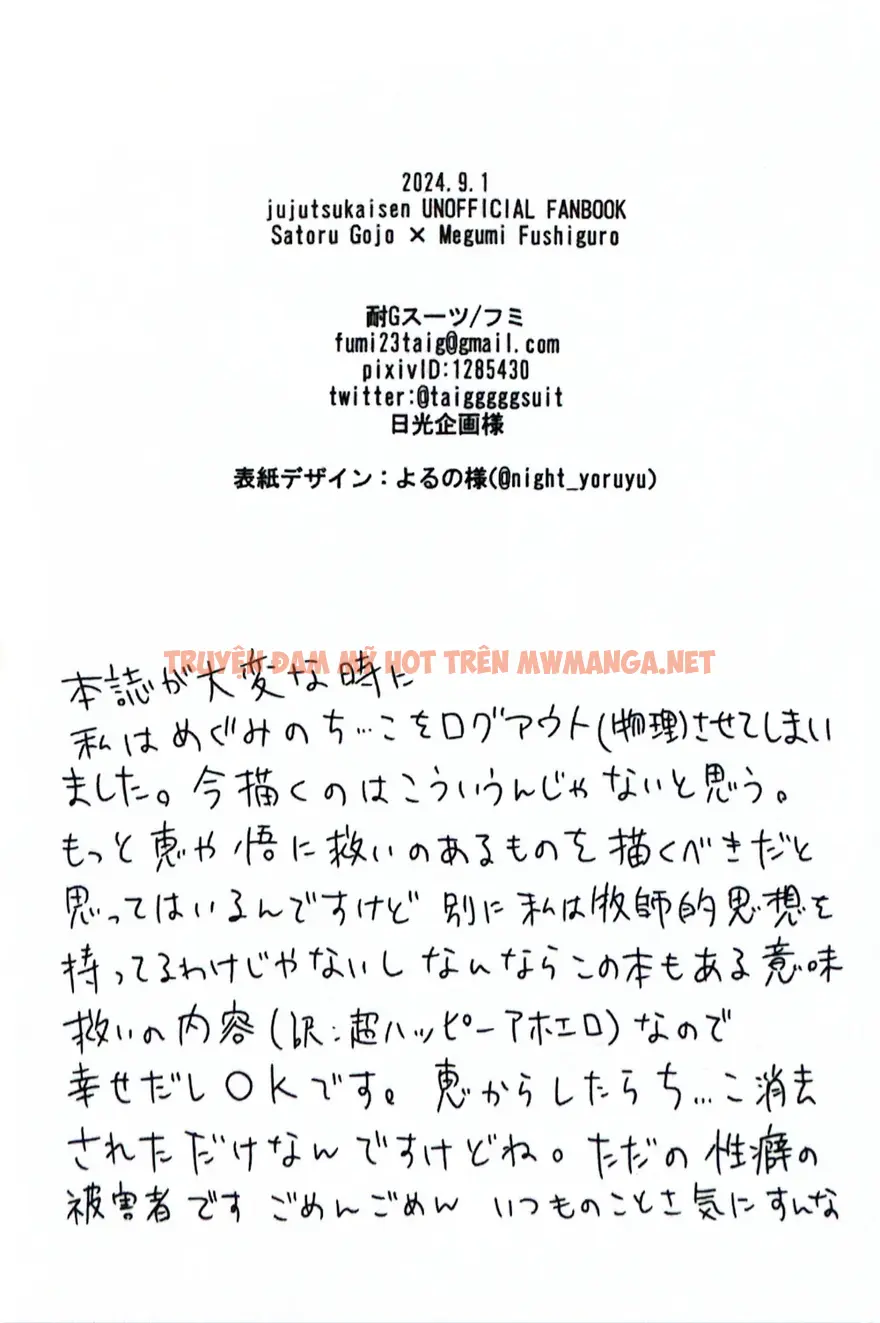 2024.9.1
jujutsukaisen UNOFFICIAL FANBOOK
Satoru Gojo × Megumi Fushiguro
耐Gスーツ/フミ
fumi23taig@gmail.com
pixivID:1285430
twitter:@taigggggsuit
日光企画様
表紙デザイン：よるの様(@night_yoruyu)
TRUYỆN ĐAM MỸ HOT TRÊN MWMANGA.NET
本誌が大変な時に
私はめぐみのち…こをログアウト(物理)させてしまい
ました。今描くのはこういうんじゃないと思う。
もっと恵や悟に救いのあるものを描くべきだと
思ってはいるんですけど 別に私は牧師的思想を
持ってるわけじゃないしなんならこの本もある意味
救いの内容(訳:超ハッピーアホエロ)なので
幸せだしOKです。恵からしたらち…こ消去
されただけなんですけどね。ただの性癖の
被害者です ごめんごめん いつものことさ気にすんな